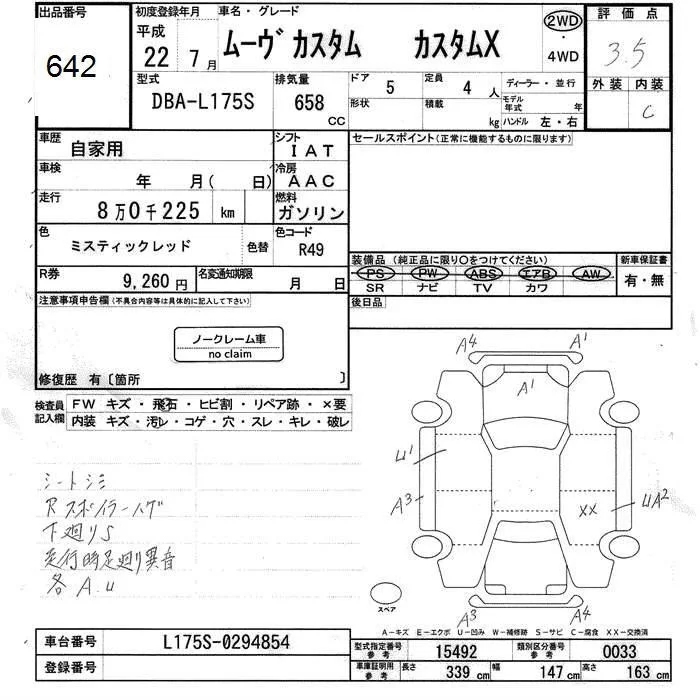 出品番号
642
初度登録年月
平成
22 7月
車名・グレード
ムーヴ カスタム カスタムX
2WD
・
4WD
評価点
3.5
外装 内装
C
型式
DBA-L175S
排気量
658
CC
ドア 5
形状
定員 4 人
積載 kg
ディーラー・並行
モデル年式 年
ハンドル 左・右
車歴
自家用
シフト
IAT
車検
年 月( 日)
冷房
AAC
走行
8万0千225 km
燃料
ガソリン
色
ミスティックレッド
色替
色コード
R49
R券
9,260円
名変通知期限
月 日
セールスポイント(正常に機能するものに限ります)
装備品(純正品に限り○をつけてください)
PS PW ABS エアB AW
SR ナビ TV カワ
新車保証書
有・無
後日品
注意事項申告欄(不具合内容等は具体的に記入して下さい)
ノークレーム車
no claim
修復歴 有〔箇所 〕
検査員記入欄
FW キズ・飛石・ヒビ割・リペア跡・×要
内装 キズ・汚レ・コゲ・穴・スレ・キレ・破レ
シートシミ
Rスポイラーハゲ
下廻りS
走行時足廻り異音
各A.U
A4 A1
A1
U1
A3
XX
UA2
A3 A4
スペア
A−キズ E−エクボ U−凹み W−補修跡 S−サビ C−腐食 XX−交換済
車台番号
L175S-0294854
登録番号
型式指定番号
参考
15492
類別区分番号
参考
0033
車庫証明用
参考
長さ
339 cm
幅
147 cm
高さ
163 cm